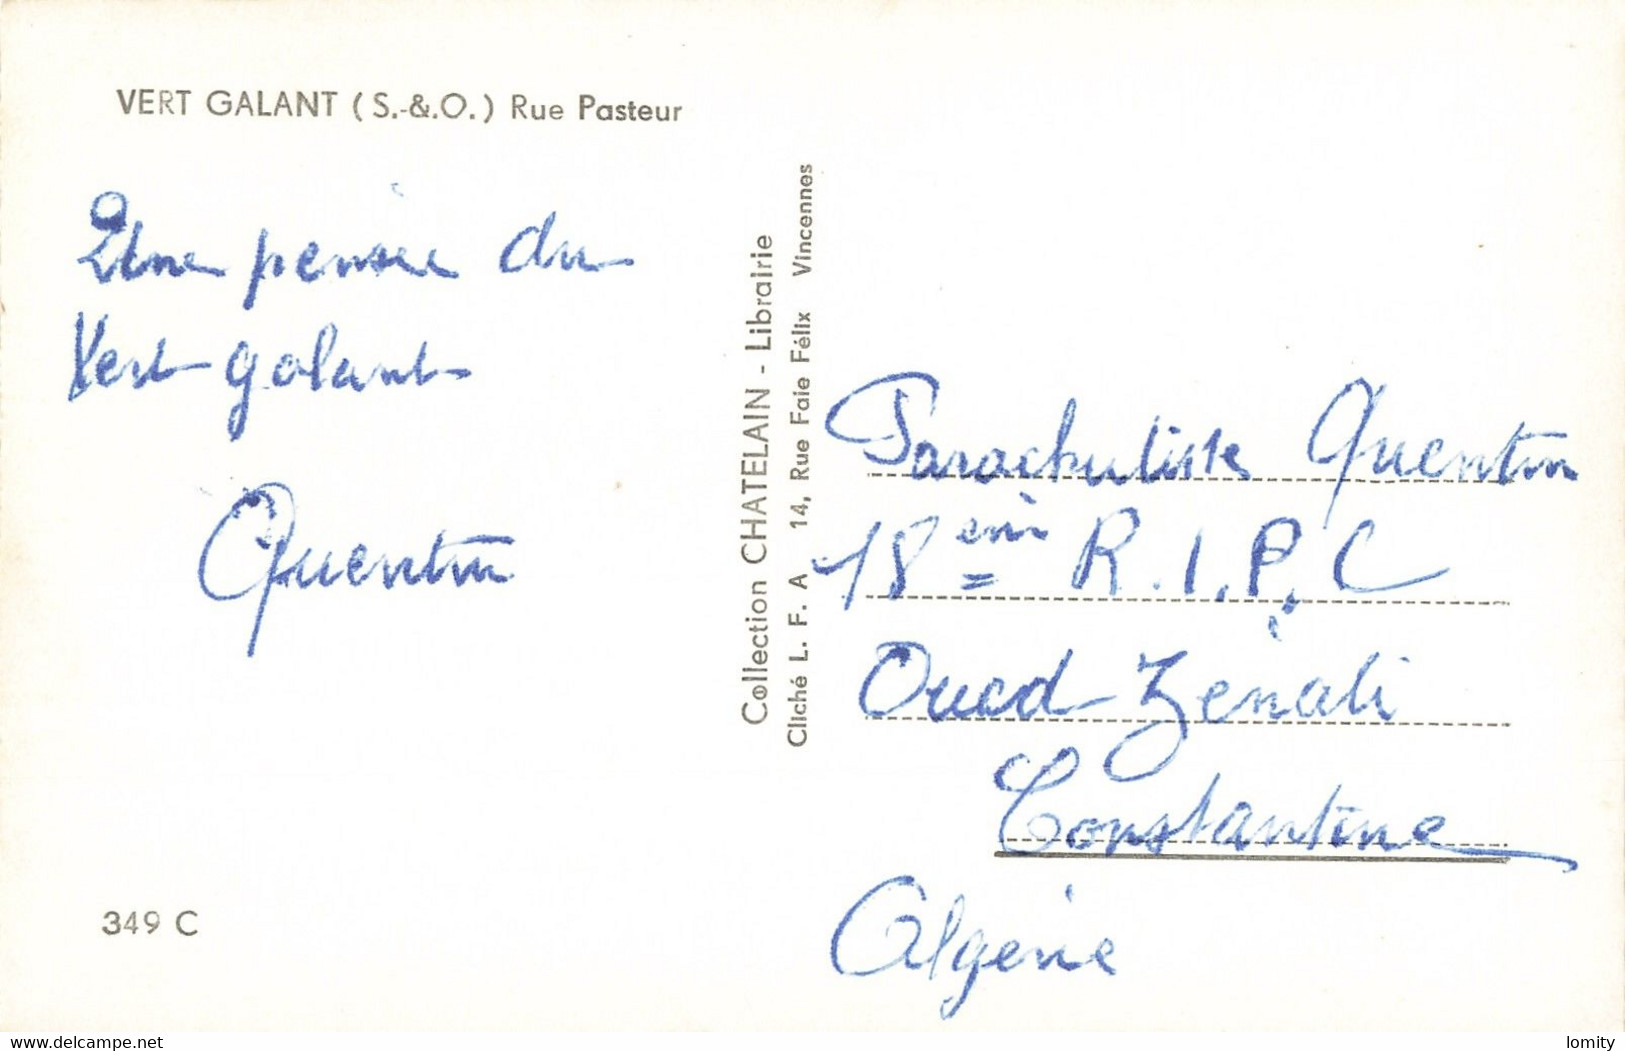 VERT GALANT (S.-&.O.) Rue Pasteur
Une pensée du
Vert galant
Quentin
349 C
Collection CHATELAIN - Librairie
Cliché L. F. A 14, Rue Faie Félix Vincennes
Parachutiste Quentin
18 ème R.I.P.C
Oued Zénati
Constantine
Algérie
delcampe.net
lomity